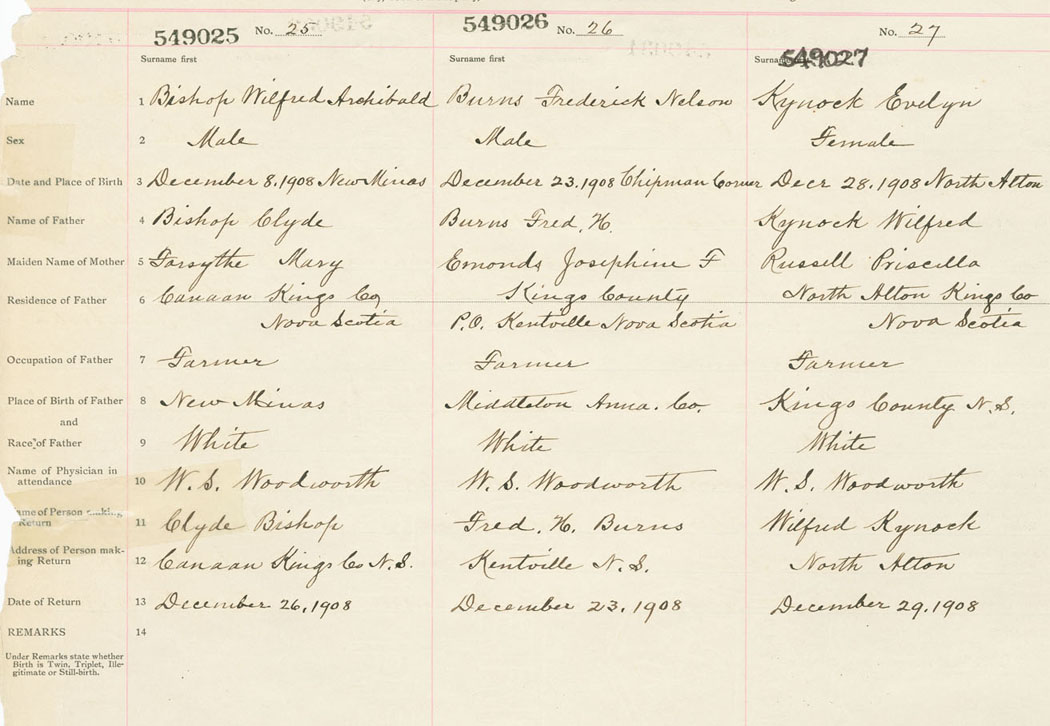 549025 No. 25 549026 No. 26 No. 27
Surname first Surname first 549027
Name 1 Bishop Wilfred Archibald Burns Frederick Nelson Kynock Evelyn
Sex 2 Male Male Female
Date and Place of Birth 3 December 8, 1908 New Minas December 23, 1908 Chipman Corner Decr 28, 1908 North Alton
Name of Father 4 Bishop Clyde Burns Fred. H. Kynock Wilfred
Maiden Name of Mother 5 Forsythe Mary Emonds Josephine F Russell Priscilla
Residence of Father 6 Canaan Kings Co, Kings County North Alton Kings Co
Nova Scotia P.O. Kentville Nova Scotia Nova Scotia
Occupation of Father 7 Farmer Farmer Farmer
Place of Birth of Father 8 New Minas Middleton Anna. Co. Kings County N.S.
and
Race of Father 9 White White White
Name of Physician in
attendance 10 W. S. Woodworth W. S. Woodworth W. S. Woodworth
ame of Person making
Return 11 Clyde Bishop Fred. H. Burns Wilfred Kynock
Address of Person mak-
ing Return 12 Canaan Kings Co N.S. Kentville N.S. North Alton
Date of Return 13 December 26, 1908 December 23, 1908 December 29, 1908
REMARKS 14
Under Remarks state whether
Birth is Twin, Triplet, Ille-
gitimate or Still-birth.